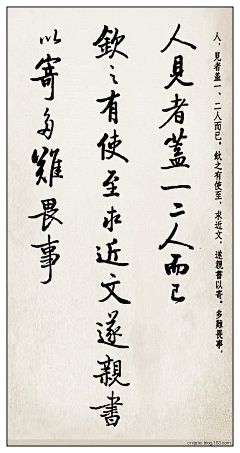 人、見者蓋一、二人而已。欽之有使至，求近文，遂親書以寄。多難畏事，
人見者蓋一二人而已
欽之有使至求近文遂親書
以寄多難畏事